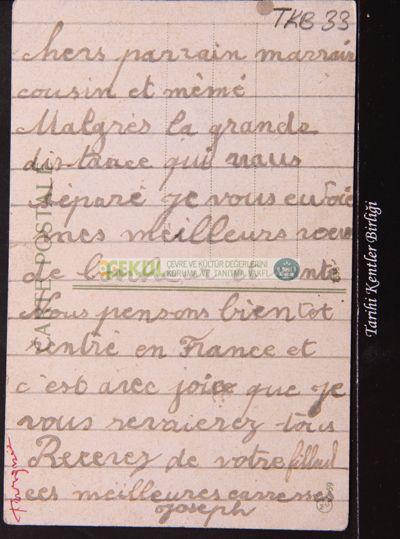 TKB 33
chers parrain marrain
cousin et mémé
Malgrés la grande
distance qui nous
séparé je vous envoie
mes meilleurs voeu
de
Nous pensons bientot
rentré en France et
c'est avec joie que je
vous revaierez tous
Recevez de votre filleul
ces meilleures carresses
joseph
CARTE POSTALE
ÇEKÜL ÇEVRE VE KÜLTÜR DEĞERLERİNİ
KORUMA VE TANITMA VAKFI
Tarihi Kentler Birliği